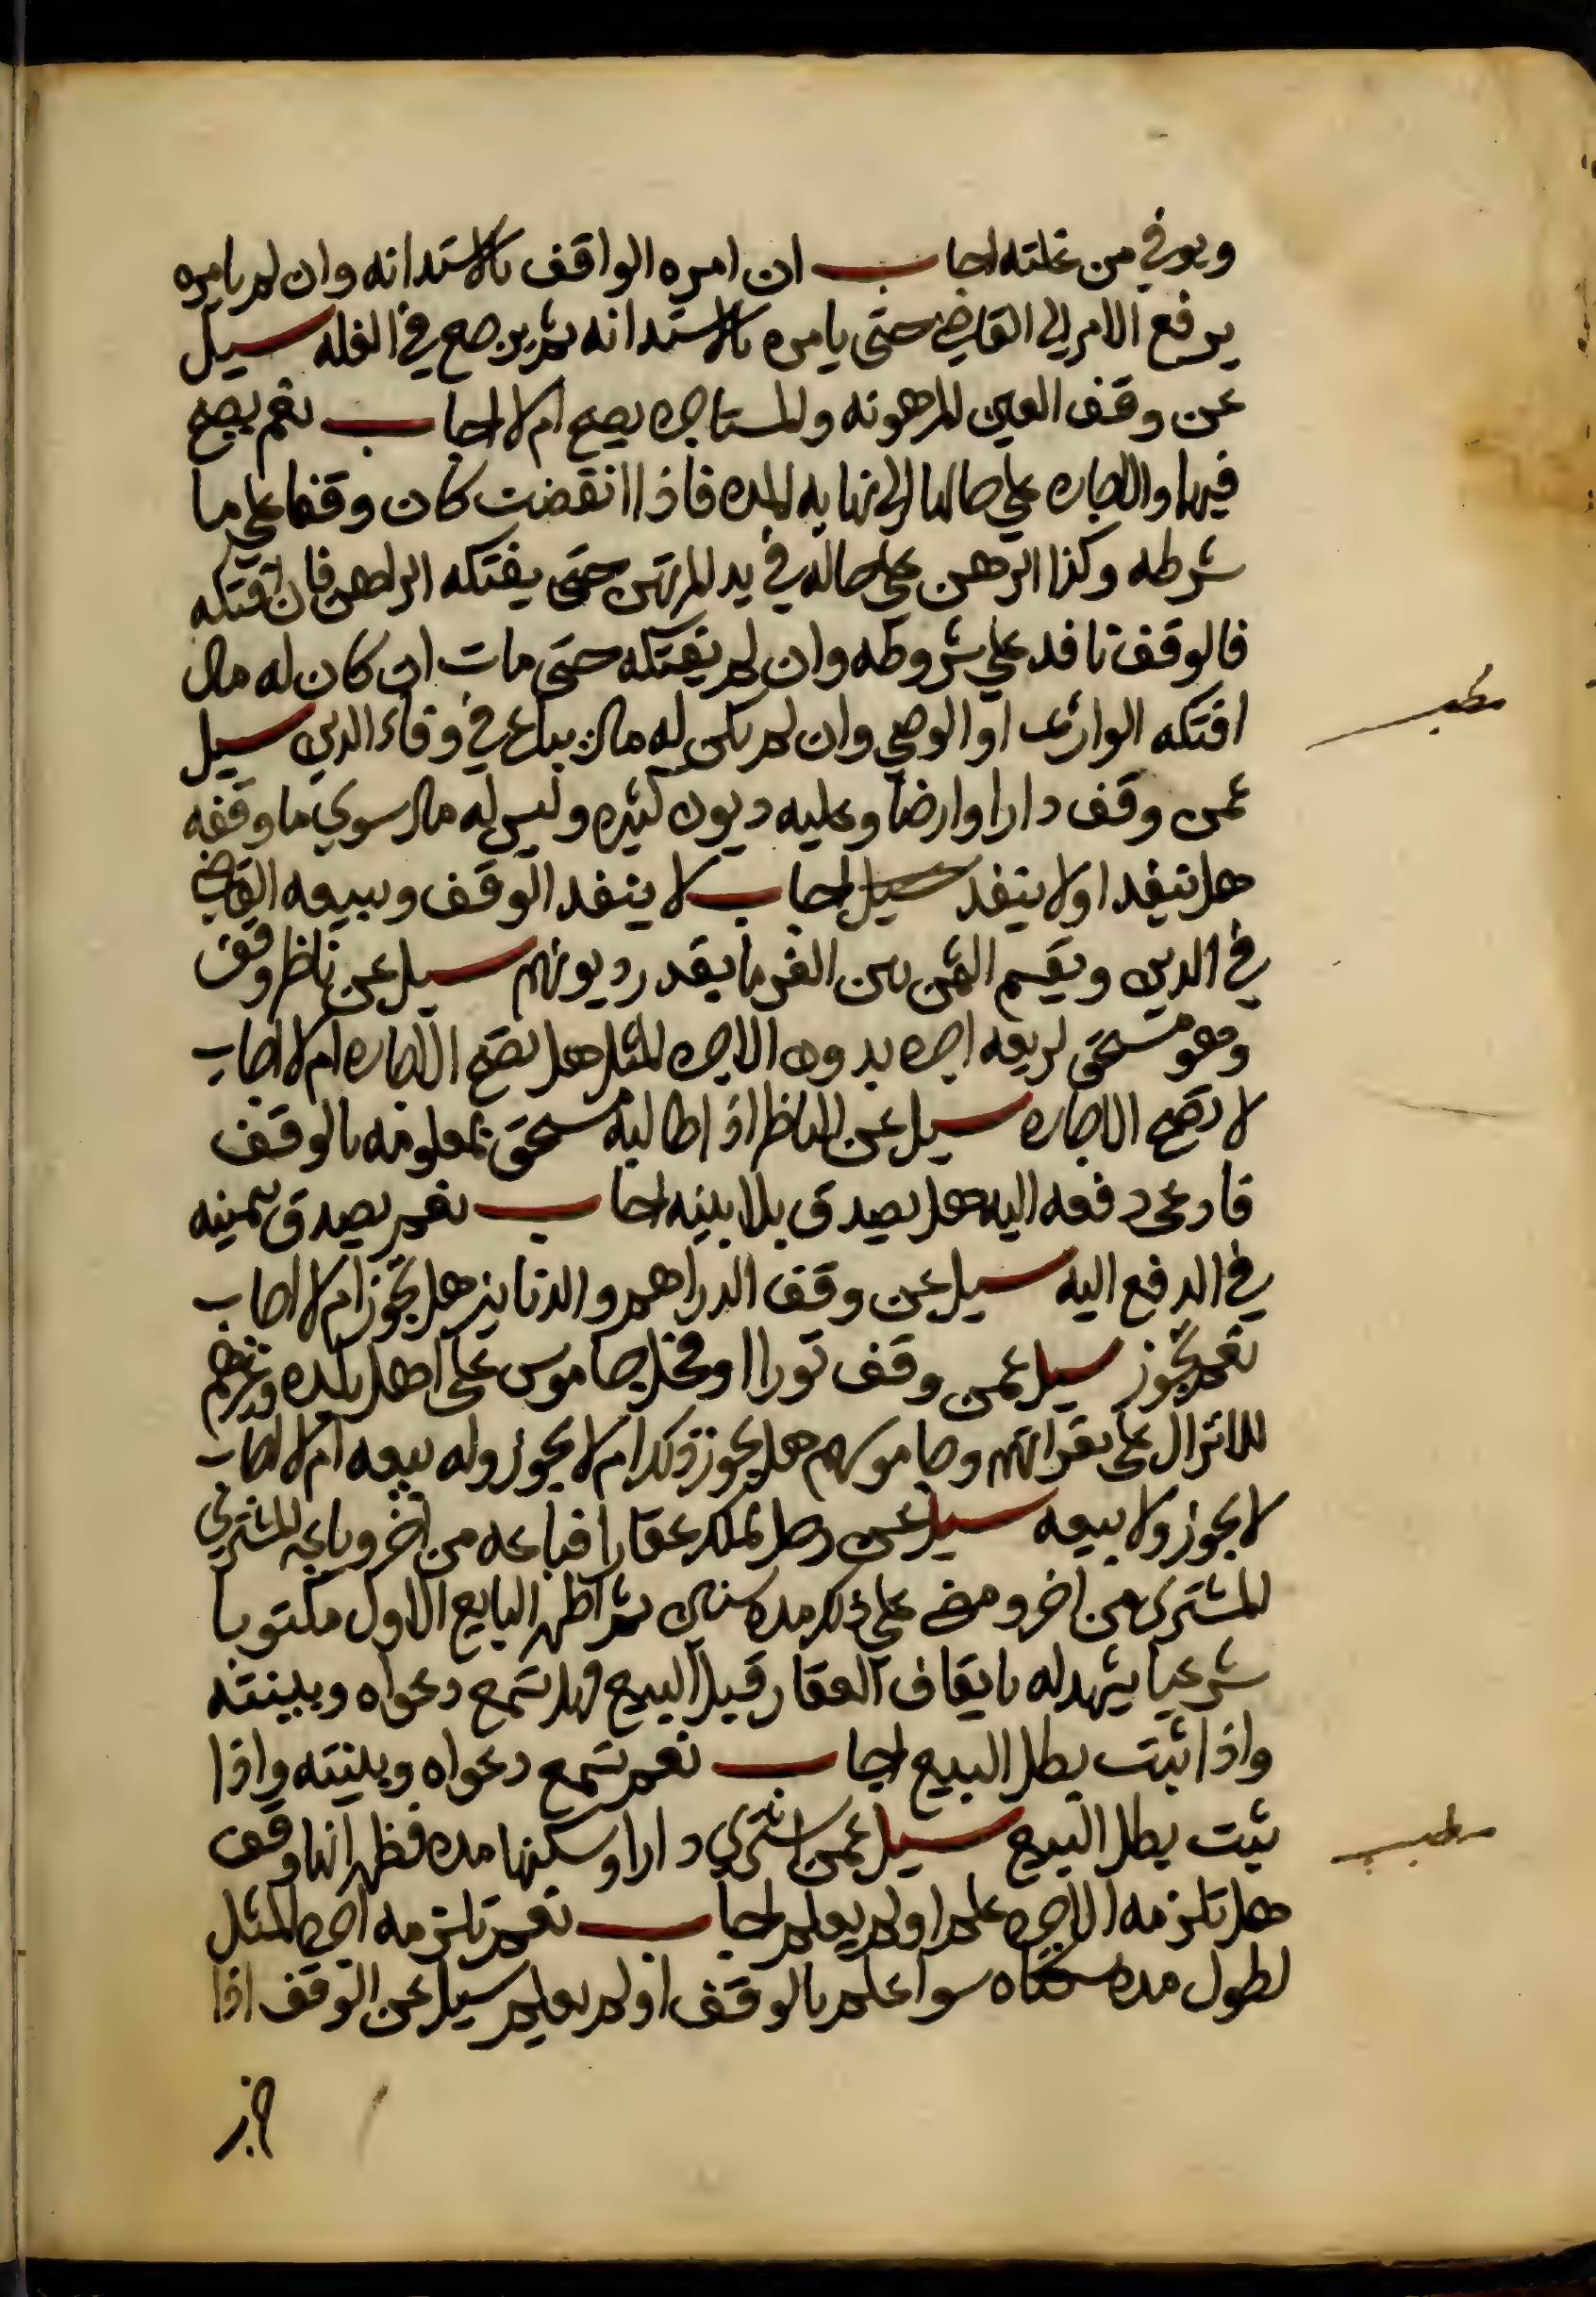 ويوفي من غلته اجاب ان امره الواقف بالاستدانه وان لم يامره
يرفع الامر الي القاضي حتى يامره بالاستدانه ثم يرجع في الغله سيل
عن وقف العين المرهونه والمستاجره يصح ام لا اجاب نعم يصح
فيهما والاجاره على حالها الى نهايه المده فاذا انقضت كان وقفا على ما
شرطه وكذا الرهن على حاله في يد المرتهن حتى يفتكه الراهن فان افتكه
فالوقف نافد علي شروطه وان لم يفتكه حتى مات ان كان له مال
مطلب
افتكه الوارث او الوصي وان لم يكن له مال يباع في وفاء الدين سيل
عمن وقف دارا وارضا وعليه ديون كثيره وليس له مال سوي ما وقفه
هل ينفد او لا ينفد سيل اجاب لا ينفد الوقف ويبيعه القاضي
في الدين ويقسم الثمن بين الغرما بقدر ديونهم سيل عن ناظر وقف
وهو مستحق لريعه اجره بدون الاجره المثل هل تصح الاجاره ام لا اجاب
لا تصح الاجاره سيل عن الناظر اذا طالبه مستحق بمعلومه بالوقف
فادعى دفعه اليه هل يصدق بلا بينه اجاب نعم يصدق بيمينه
في الدفع اليه سيل عن وقف الدراهم والدنانير هل يجوز ام لا اجاب
نعم يجوز سيل عمن وقف تورا او فحل جاموس على اهل بلده وغيرهم
للانزال على بقراتهم وجاموسهم هل يجوز ذلك ام لا يجوز وله بيعه ام لا اجاب
لا يجوز ولا بيعه سيل عن رجل تملك عقارا فباعه من اخر وباعه المشتري
للمشتري من اخر ومضى على ذلك مده سنين ثم اظهر البايع الاول مكتوبا
شرعيا يشهد له بايقاف العقار قبل البيع فهل تسمع دعواه وبينته
واذا ثبت بطل البيع اجاب نعم تسمع دعواه وبينته واذا
ثبت بطل البيع سيل عمن اشتري دارا وسكنها مده فظهر انها وقف
مطلب
هل تلزمه الاجره علم او لم يعلم اجاب نعم تلزمه اجره المثل
لطول مده سكناه سوا علم بالوقف او لم يعلم سيل عن الوقف اذا